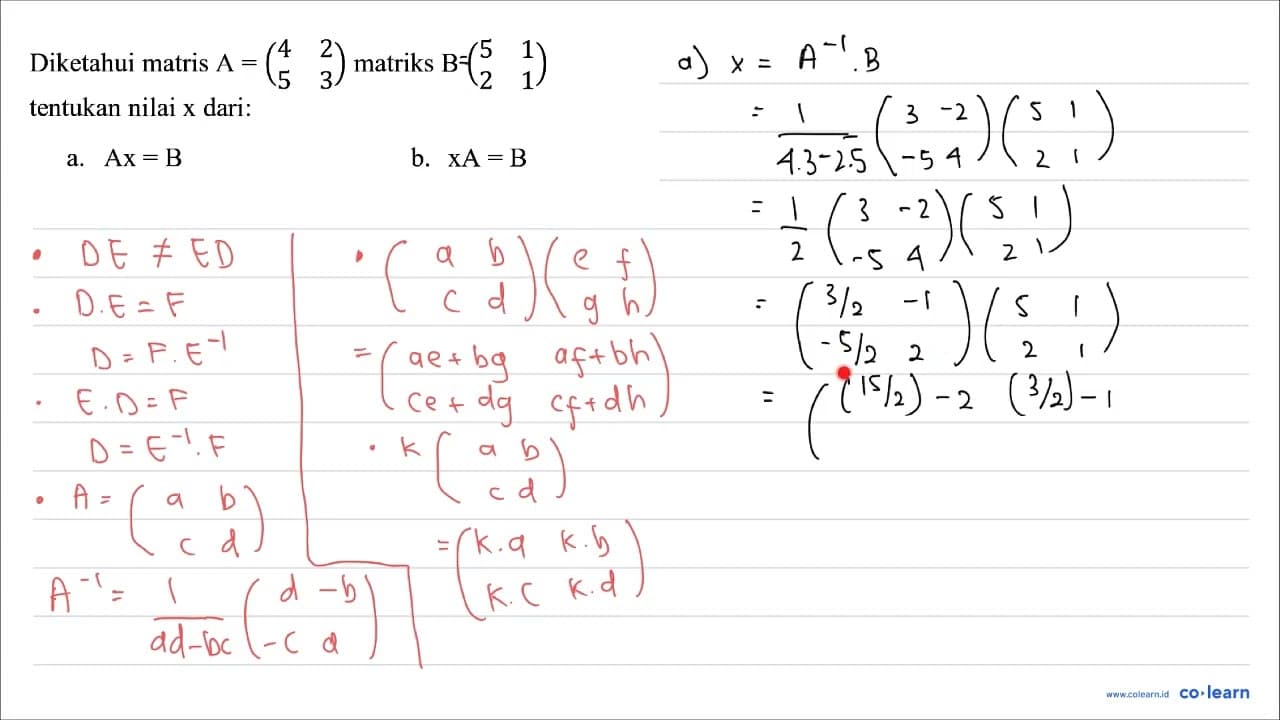 Diketahui matris A = (4 2 5 3) matriks B=(5 1 2 1)
tentukan nilai x dari:
a. Ax = B
b. xA = B
• DE ≠ ED
• D.E = F
D = F.E⁻¹
• E.D = F
D = E⁻¹.F
• A = (a b
c d)
A⁻¹ = 1/ad-bc (d -b
-c a)
• (a b
c d) (e f
g h)
= (ae+bg af+bh
ce+dg cf+dh)
• k (a b
c d)
= (k.a k.b
k.c k.d)
a) x = A⁻¹.B
= 1/4.3-2.5 (3 -2
-5 4) (5 1
2 1)
= 1/2 (3 -2
-5 4) (5 1
2 1)
= (3/2 -1
-5/2 2) (5 1
2 1)
= ((15/2)-2 (3/2)-1
www.colearn.id co·learn